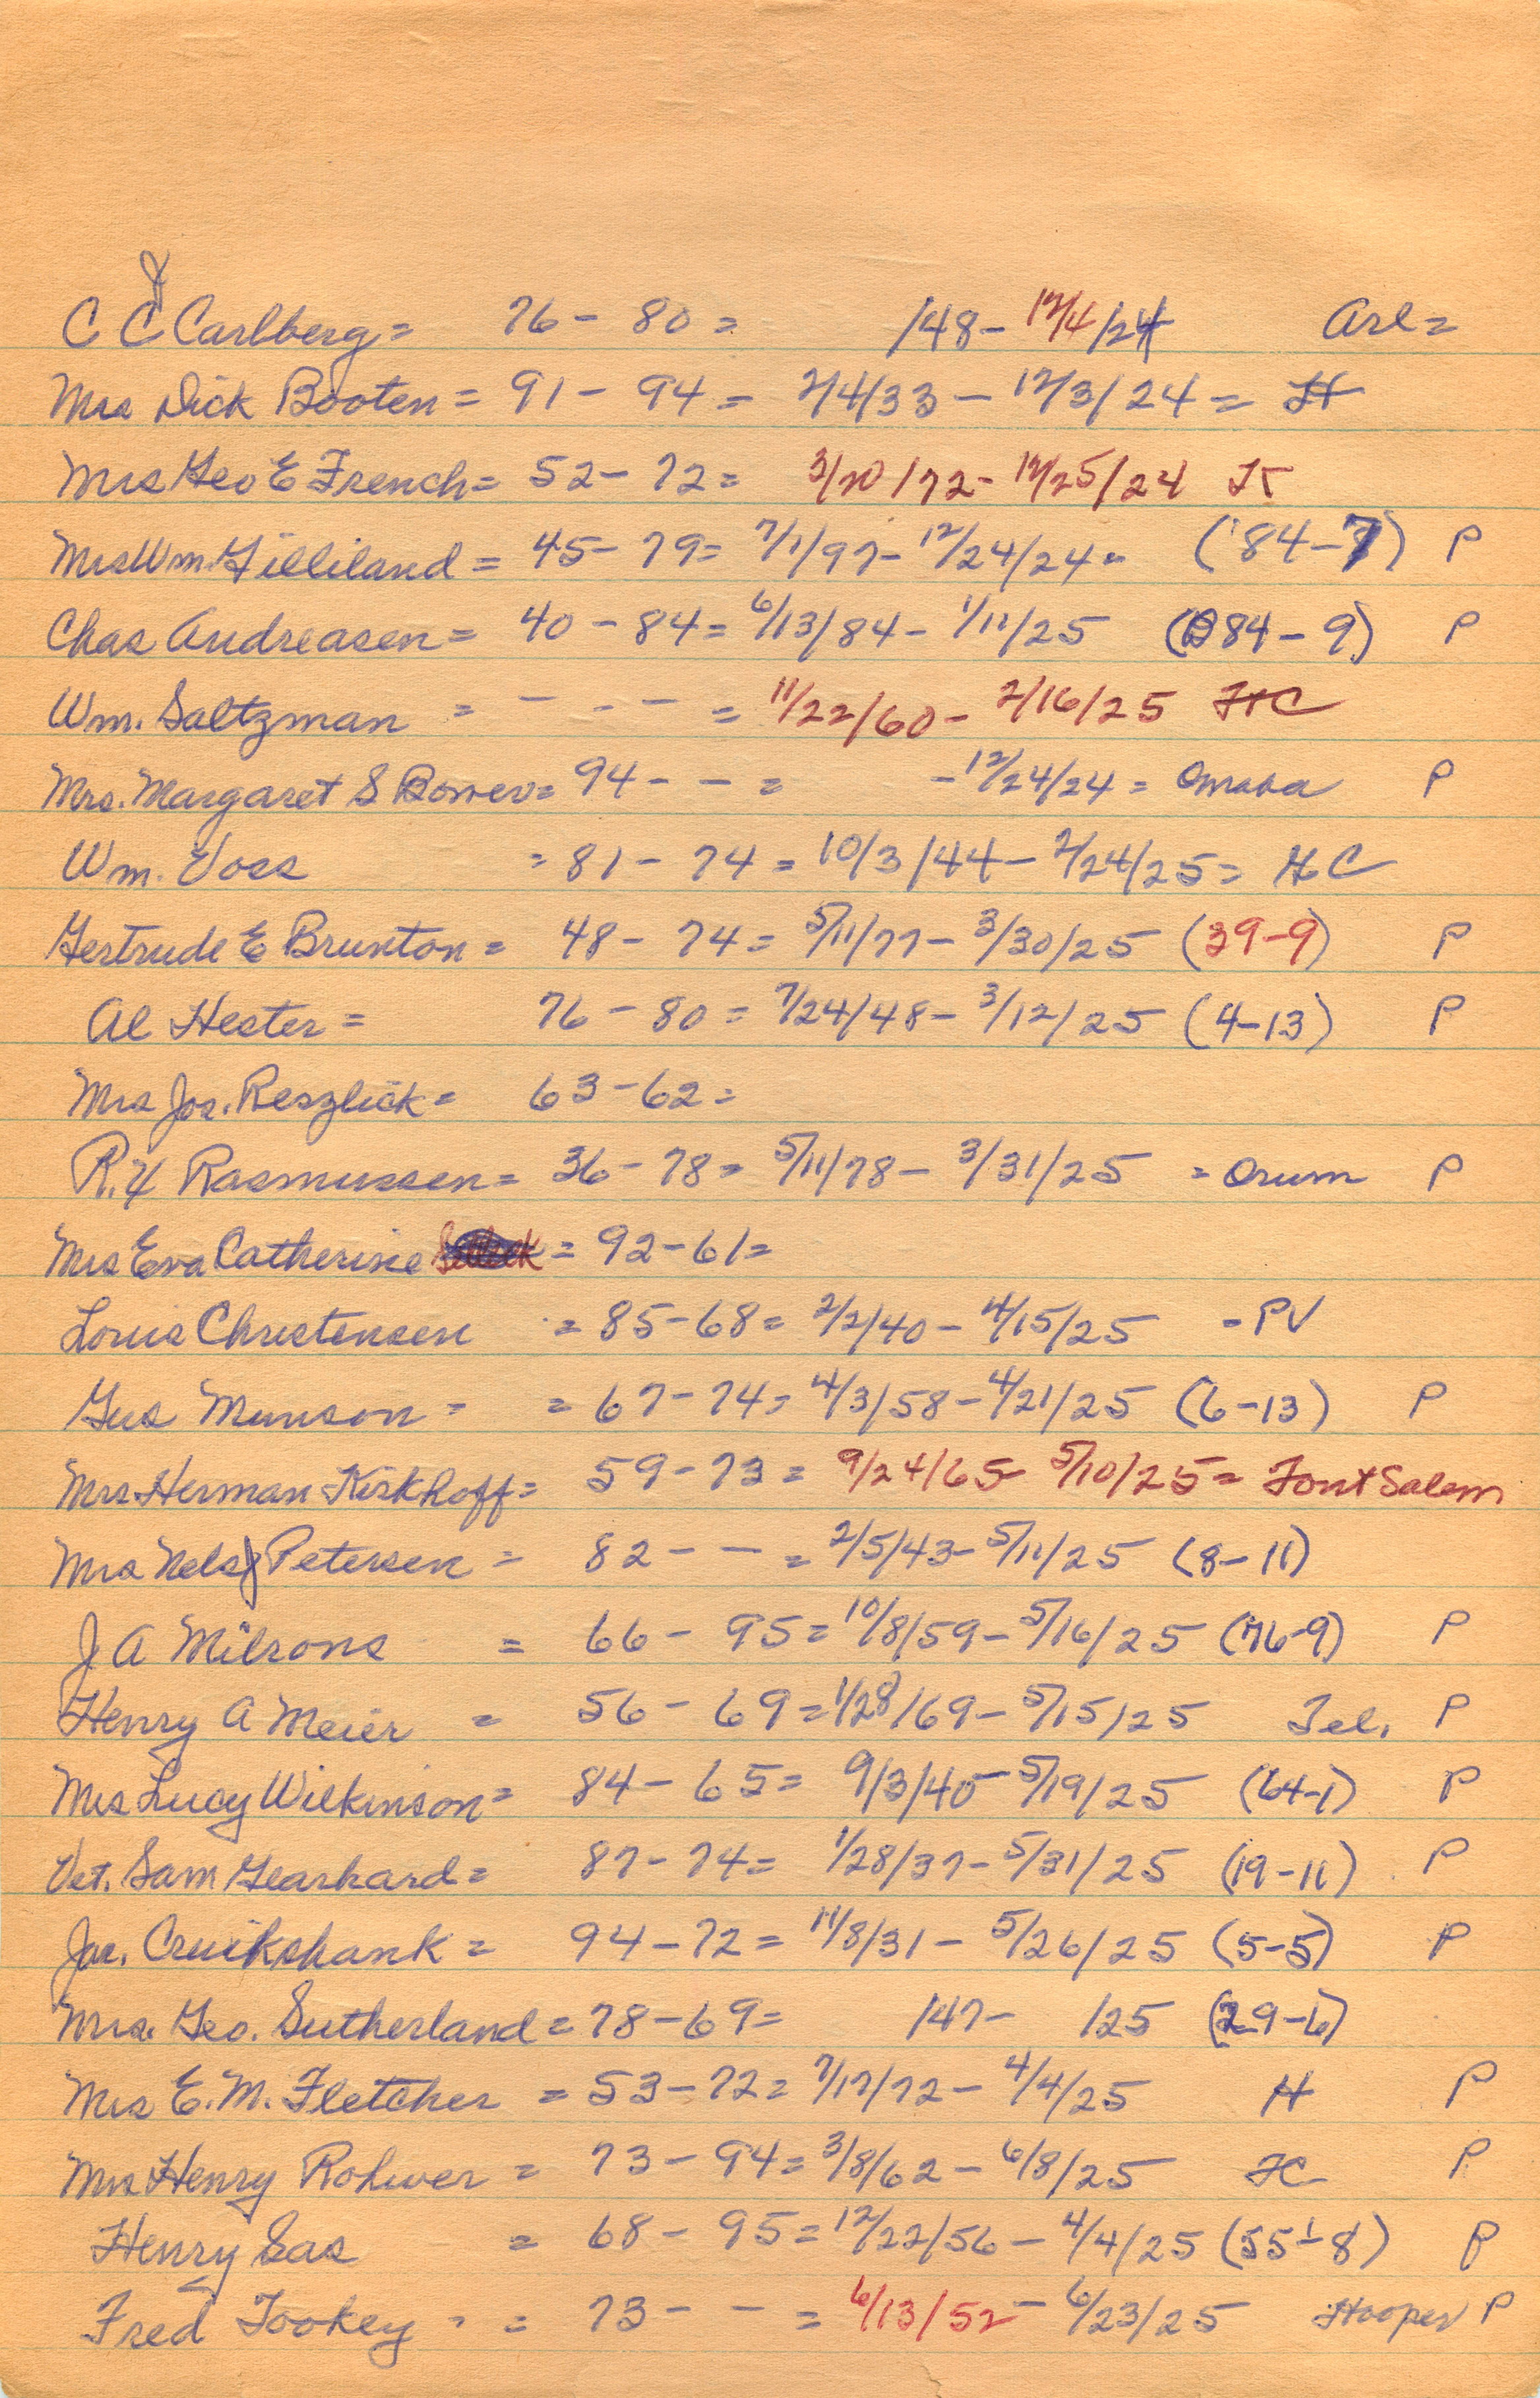 C J Carlberg = 76 - 80 = /48 - 12/4/24 Arl =
Mrs Dick Booten = 91 - 94 = 2/4/33 - 12/3/24 = H
Mrs Geo E French = 52 - 72 = 3/20/72 - 12/25/24 K
Mrs Wm. Gilliland = 45 - 79 = 7/1/97 - 12/24/24 - ('84-7) P
Chas Andreasen = 40 - 84 = 6/13/84 - 1/11/25 (84-9) P
Wm. Saltzman = - - - = 11/22/60 - 2/16/25 HC
Mrs. Margaret S Bower = 94 - - = - 12/24/24 = Omaha P
Wm. Voss = 81 - 74 = 10/3/44 - 2/24/25 = HC
Gertrude E Brunton = 48 - 74 = 5/11/77 - 3/30/25 (39-9) P
Al Hester = 76 - 80 = 7/24/48 - 3/12/25 (4-13) P
Mrs Jos. Reszlick = 63 - 62 =
R. H Rasmussen = 36 - 78 = 5/11/78 - 3/31/25 = Orum P
Mrs Eva Catherine = 92 - 61 =
Louis Christensen = 85 - 68 = 2/2/40 - 4/15/25 - PV
Gus Munson = = 67 - 74 = 4/3/58 - 4/21/25 (6-13) P
Mrs Herman Kirkhoff = 59 - 73 = 9/24/65 - 5/10/25 = Font Salem
Mrs Nels J Petersen = 82 - - = 2/5/43 - 5/11/25 (8-11)
J. A Milrons = 66 - 95 = 10/8/59 - 5/16/25 (76-9) P
Henry A Meier = 56 - 69 = 1/28/69 - 5/15/25 Tel. P
Mrs Lucy Wilkinson = 84 - 65 = 9/3/40 - 5/19/25 (64-1) P
Vet. Sam Gearhard = 87 - 74 = 1/28/37 - 5/31/25 (19-11) P
Jas. Cruikshank = 94 - 72 = 11/8/31 - 5/26/25 (5-5) P
Mrs. Geo. Sutherland = 78 - 69 = /47 - /25 (29-6)
Mrs E. M. Fletcher = 53 - 72 = 7/17/72 - 4/4/25 H P
Mrs Henry Rohwer = 73 - 94 = 3/8/62 - 6/8/25 FC P
Henry Sas = 68 - 95 = 12/22/56 - 4/4/25 (55-8) P
Fred Tookey - = 73 - - = 6/13/52 - 6/23/25 Hooper P